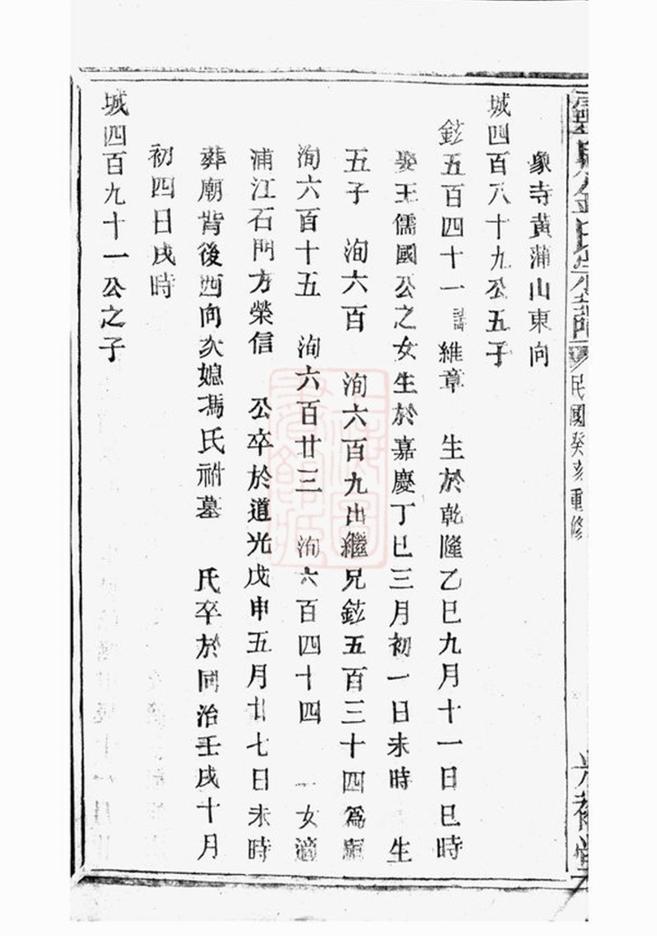 民國癸亥重修
象寺黃蒲山東向
城四百八十九公五子
鉉五百四十一 諱維章 生於乾隆乙巳九月十一日巳時
娶王儒國公之女生於嘉慶丁巳三月初一日未時 生
五子 洵六百 洵六百九出繼兄鉉五百三十四為嗣
洵六百十五 洵六百廿三 洵六百四十四 一女適
浦江石門方榮信 公卒於道光戊申五月廿七日未時
葬廟背後酉向次媳馮氏祔墓 氏卒於同治壬戌十月
初四日戌時
城四百九十一公之子